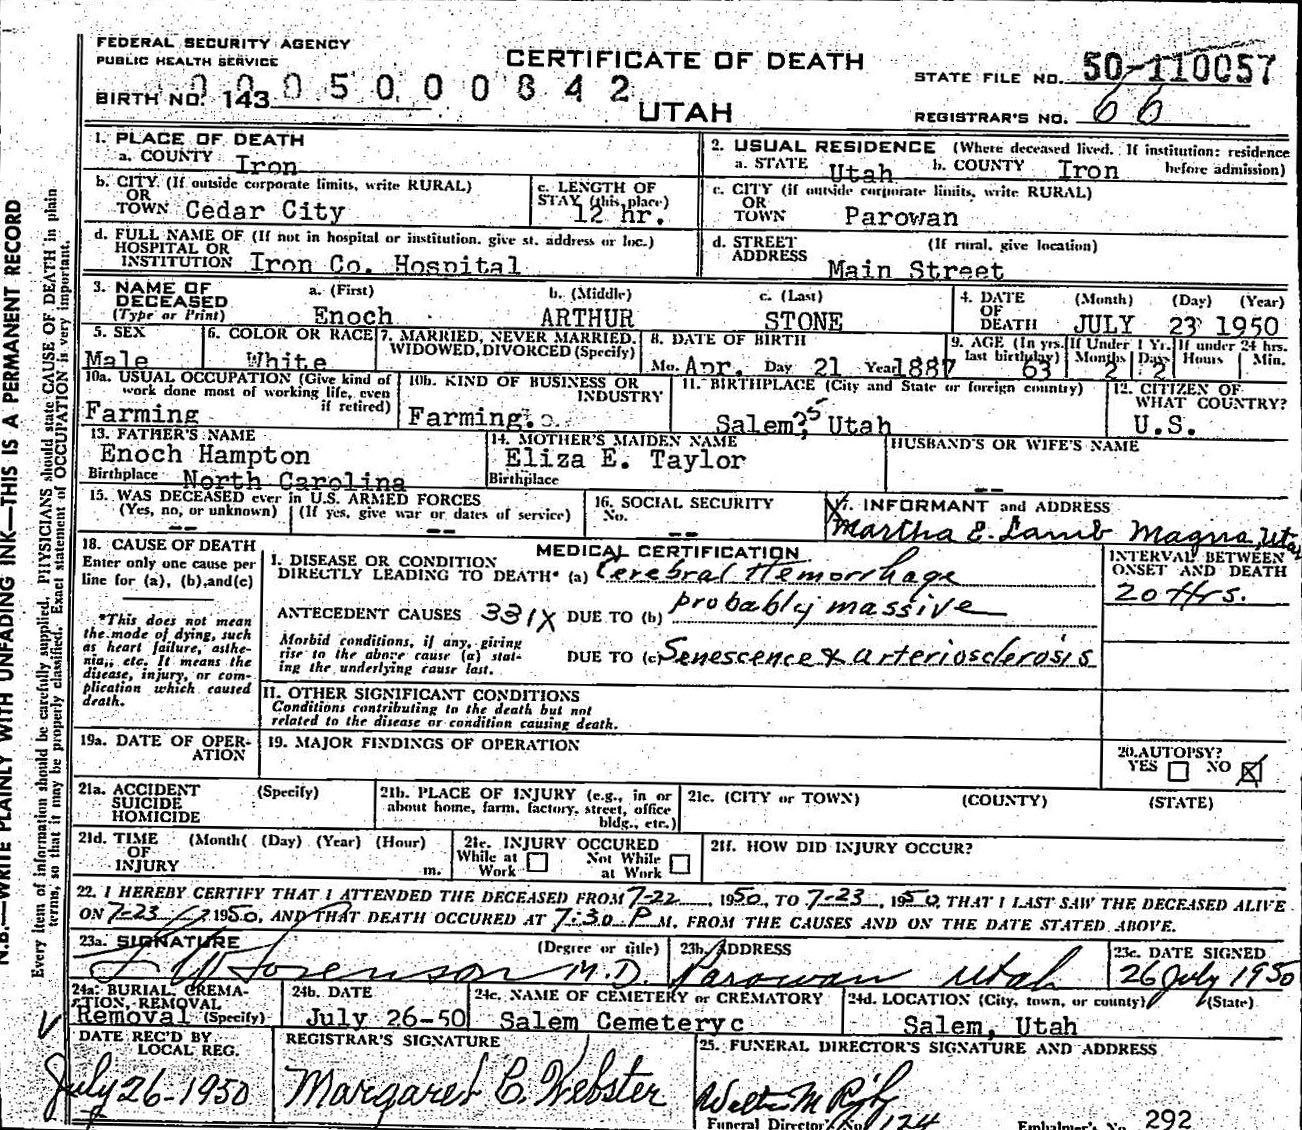 FEDERAL SECURITY AGENCY
PUBLIC HEALTH SERVICE
CERTIFICATE OF DEATH
UTAH
STATE FILE NO. 50-110057
BIRTH NO. 143 0 0 0 5 0 0 0 0 8 4 2
REGISTRAR'S NO. 66
1. PLACE OF DEATH
a. COUNTY Iron
2. USUAL RESIDENCE (Where deceased lived. If institution: residence before admission)
a. STATE Utah b. COUNTY Iron
b. CITY (If outside corporate limits, write RURAL)
OR
TOWN Cedar City
c. LENGTH OF
STAY (this place)
12 hr.
c. CITY (if outside corporate limits, write RURAL)
OR
TOWN Parowan
d. FULL NAME OF (If not in hospital or institution. give st. address or loc.)
HOSPITAL OR
INSTITUTION Iron Co. Hospital
d. STREET (If rural, give location)
ADDRESS
Main Street
3. NAME OF
DECEASED
(Type or Print)
a. (First) b. (Middle) c. (Last)
Enoch ARTHUR STONE
4. DATE (Month) (Day) (Year)
OF
DEATH JULY 23 1950
5. SEX
Male
6. COLOR OR RACE
White
7. MARRIED, NEVER MARRIED.
WIDOWED, DIVORCED (Specify)
8. DATE OF BIRTH
Mo. Apr. Day 21 Year 1887
9. AGE (In yrs. last birthday) 63
If Under 1 Yr. Months 2 Days 2
If under 24 hrs. Hours Min.
10a. USUAL OCCUPATION (Give kind of
work done most of working life, even
if retired)
Farming
10b. KIND OF BUSINESS OR
INDUSTRY
Farming
11. BIRTHPLACE (City and State or foreign country)
Salem, Utah
12. CITIZEN OF
WHAT COUNTRY?
U.S.
13. FATHER'S NAME
Enoch Hampton
Birthplace North Carolina
14. MOTHER'S MAIDEN NAME
Eliza E. Taylor
Birthplace
HUSBAND'S OR WIFE'S NAME
--
15. WAS DECEASED ever in U.S. ARMED FORCES
(Yes, no, or unknown) (If yes, give war or dates of service)
-- --
16. SOCIAL SECURITY
No.
--
17. INFORMANT and ADDRESS
Martha E. Lamb Magna, Utah
18. CAUSE OF DEATH
Enter only one cause per
line for (a), (b), and (c)
*This does not mean
the mode of dying, such
as heart failure, asthe-
nia,, etc. It means the
disease, injury, or com-
plication which caused
death.
MEDICAL CERTIFICATION
I. DISEASE OR CONDITION
DIRECTLY LEADING TO DEATH* (a) Cerebral Hemorrhage
ANTECEDENT CAUSES 331X DUE TO (b) probably massive
Morbid conditions, if any, giving
rise to the above cause (a) stat-
ing the underlying cause last.
DUE TO (c) Senescence & arteriosclerosis
INTERVAL BETWEEN
ONSET AND DEATH
20 Hrs.
II. OTHER SIGNIFICANT CONDITIONS
Conditions contributing to the death but not
related to the disease or condition causing death.
19a. DATE OF OPER-
ATION
19. MAJOR FINDINGS OF OPERATION
20. AUTOPSY?
YES NO X
21a. ACCIDENT (Specify)
SUICIDE
HOMICIDE
21b. PLACE OF INJURY (e.g., in or
about home, farm, factory, street, office
bldg., etc.)
21c. (CITY or TOWN) (COUNTY) (STATE)
21d. TIME (Month( (Day) (Year) (Hour)
OF
INJURY m.
21e. INJURY OCCURED
While at Work Not While at Work
21f. HOW DID INJURY OCCUR?
22. I HEREBY CERTIFY THAT I ATTENDED THE DECEASED FROM 7-22, 1950, TO 7-23, 1950, THAT I LAST SAW THE DECEASED ALIVE
ON 7-23, 1950, AND THAT DEATH OCCURED AT 7:30 P M. FROM THE CAUSES AND ON THE DATE STATED ABOVE.
23a. SIGNATURE (Degree or title)
Sorenson M.D.
23b. ADDRESS
Parowan Utah
23c. DATE SIGNED
26 July 1950
24a. BURIAL, CREMA-
TION, REMOVAL
Removal (Specify)
24b. DATE
July 26-50
24c. NAME OF CEMETERY or CREMATORY
Salem Cemetery c
24d. LOCATION (City, town, or county) (State)
Salem, Utah
DATE REC'D BY
LOCAL REG.
July 26-1950
REGISTRAR'S SIGNATURE
Margaret C. Webster
25. FUNERAL DIRECTOR'S SIGNATURE AND ADDRESS
Funeral Director's No. 124
Embalmer's No. 292
N.B.—WRITE PLAINLY WITH UNFADING INK—THIS IS A PERMANENT RECORD
Every item of information should be carefully supplied. PHYSICIANS should state CAUSE OF DEATH in plain
terms, so that it may be properly classified. Exact statement of OCCUPATION is very important.